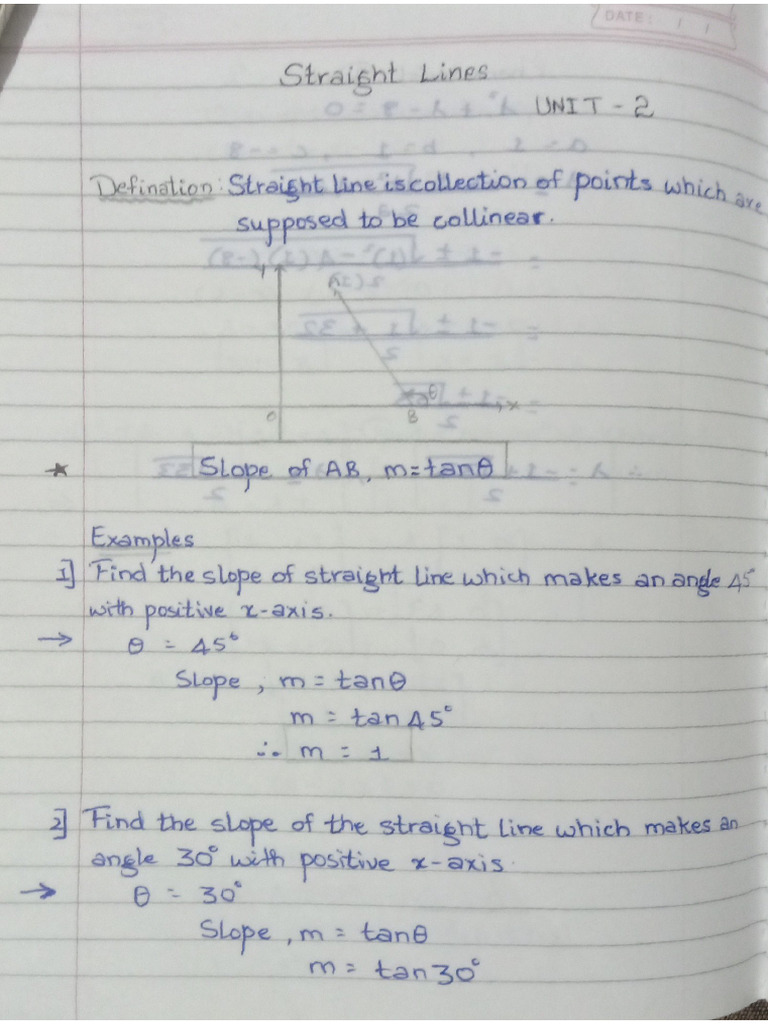 DATE: / /
Straight Lines
UNIT - 2
Defination: Straight Line is collection of points which are
supposed to be collinear.
Y
θ
O B x
* Slope of AB, m=tanθ
Examples
1] Find the slope of straight line which makes an angle 45°
with positive x-axis.
→ θ = 45°
Slope, m = tanθ
m = tan 45°
∴ m = 1
2] Find the slope of the straight line which makes an
angle 30° with positive x-axis.
→ θ = 30°
Slope, m = tanθ
m = tan30°